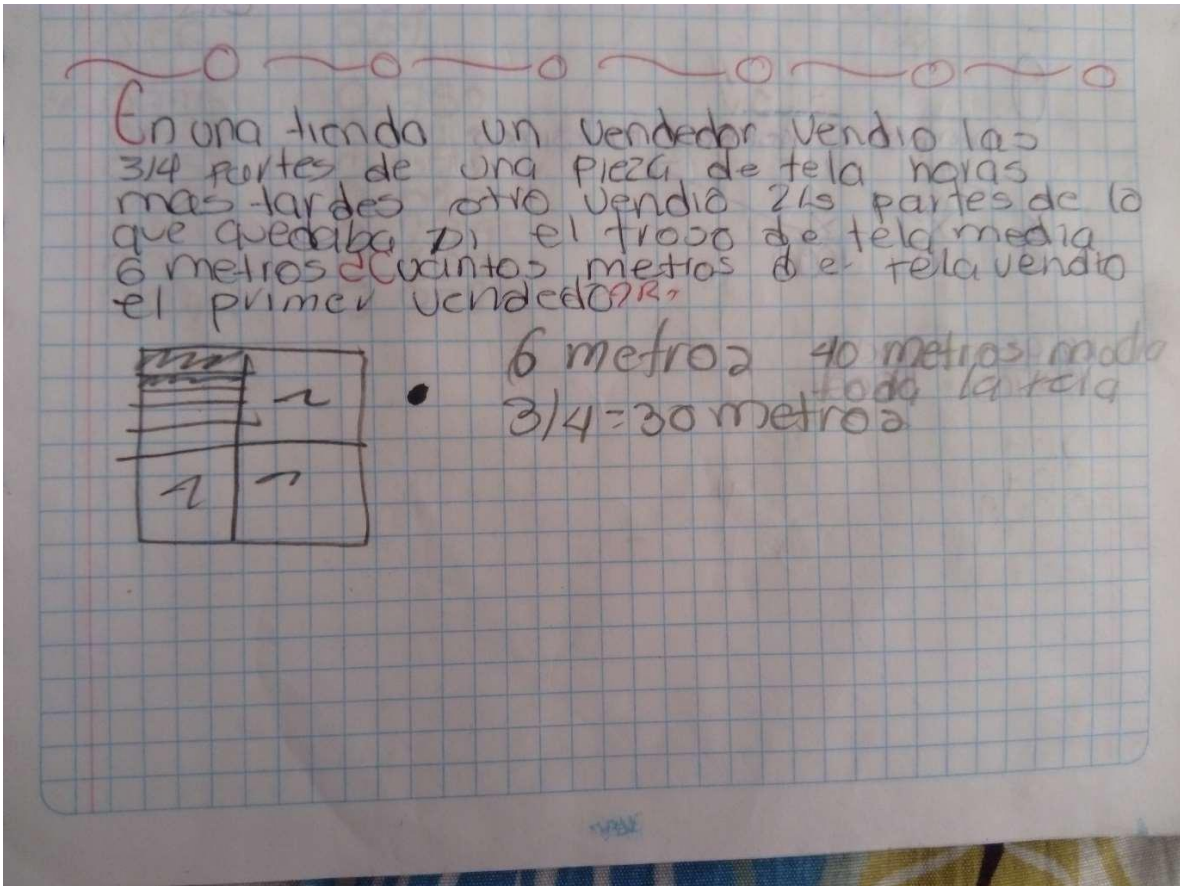 En una tienda un vendedor vendio las
3/4 partes de una pieza de tela horas
mas tardes otro vendio 2/5 partes de lo
que quedaba Si el trozo de tela media
6 metros ¿Cuantos metros de tela vendio
el primer vendedor?
6 metros 40 metros media
toda la tela
3/4=30 metros